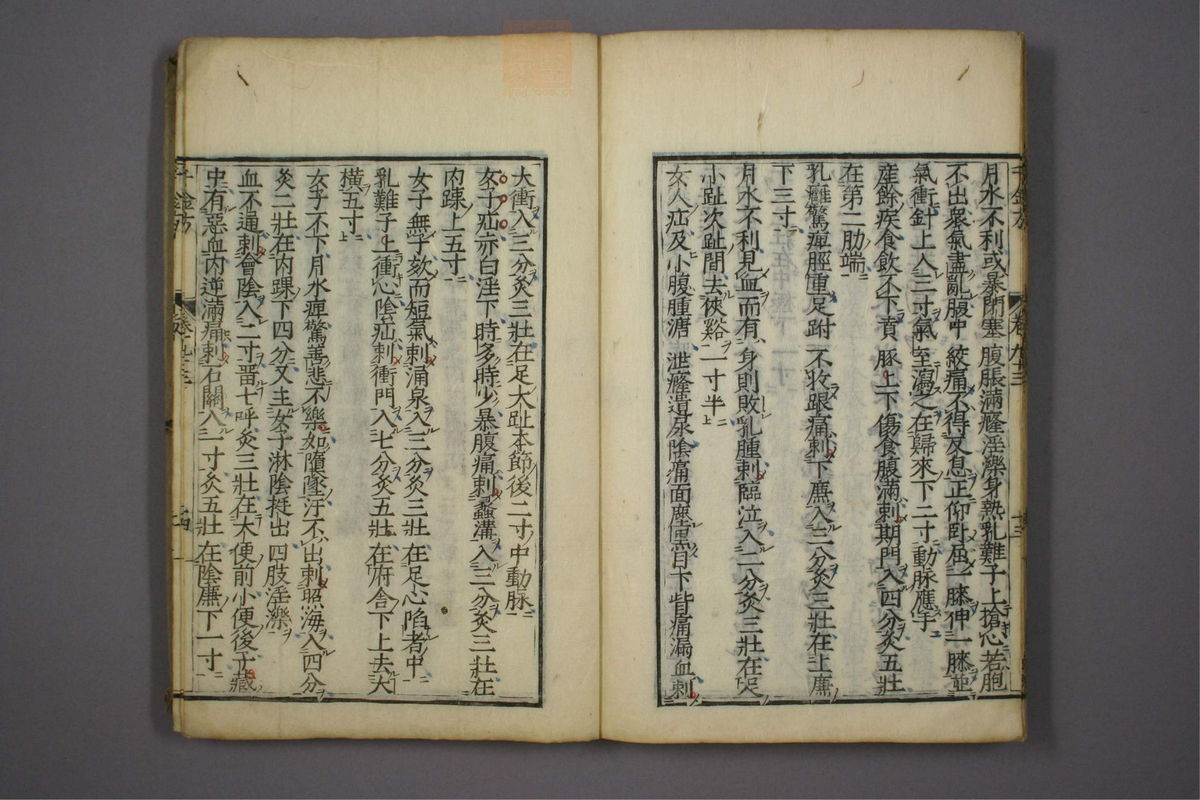 月水不利或暴閉塞腹脹滿癃淫濼身熱乳難子上搶心若胞
不出衆氣盡亂腹中絞痛不得反息正仰卧屈一膝伸一膝並
氣衝針上入三寸氣至瀉之在歸來下二寸動脉應手
産餘疾食飲不下賁豚上下傷食腹滿刺期門入四分灸五壯
在第二肋端
乳癰驚痺脛重足跗不收跟痛刺下廉入三分灸三壯在上廉
下三寸
月水不利見血而有身則敗乳腫刺臨泣入二分灸三壯在足
小趾次趾間去俠谿一寸半
女人疝及小腹腫溏泄癃遺尿陰痛面塵黑目下眥痛漏血刺
大衝入三分灸三壯在足大趾本節後二寸中動脉
女子疝赤白淫下時多時少暴腹痛刺蠡溝入三分灸三壯在
内踝上五寸
女子無子欬而短氣刺涌泉入三分灸三壯在足心陷者中
乳難子上衝心陰疝刺衝門入七分灸五壯在府舍下上去大
橫五寸
女子不下月水痺驚善悲不樂如墮墜汗不出刺照海入四分
灸二壯在内踝下四分又主女子淋陰挺出四肢淫濼
血不通刺會陰入二寸畱七呼灸三壯在大便前小便後子藏
中有惡血内逆滿痛刺石關入一寸灸五壯在陰廉下一寸